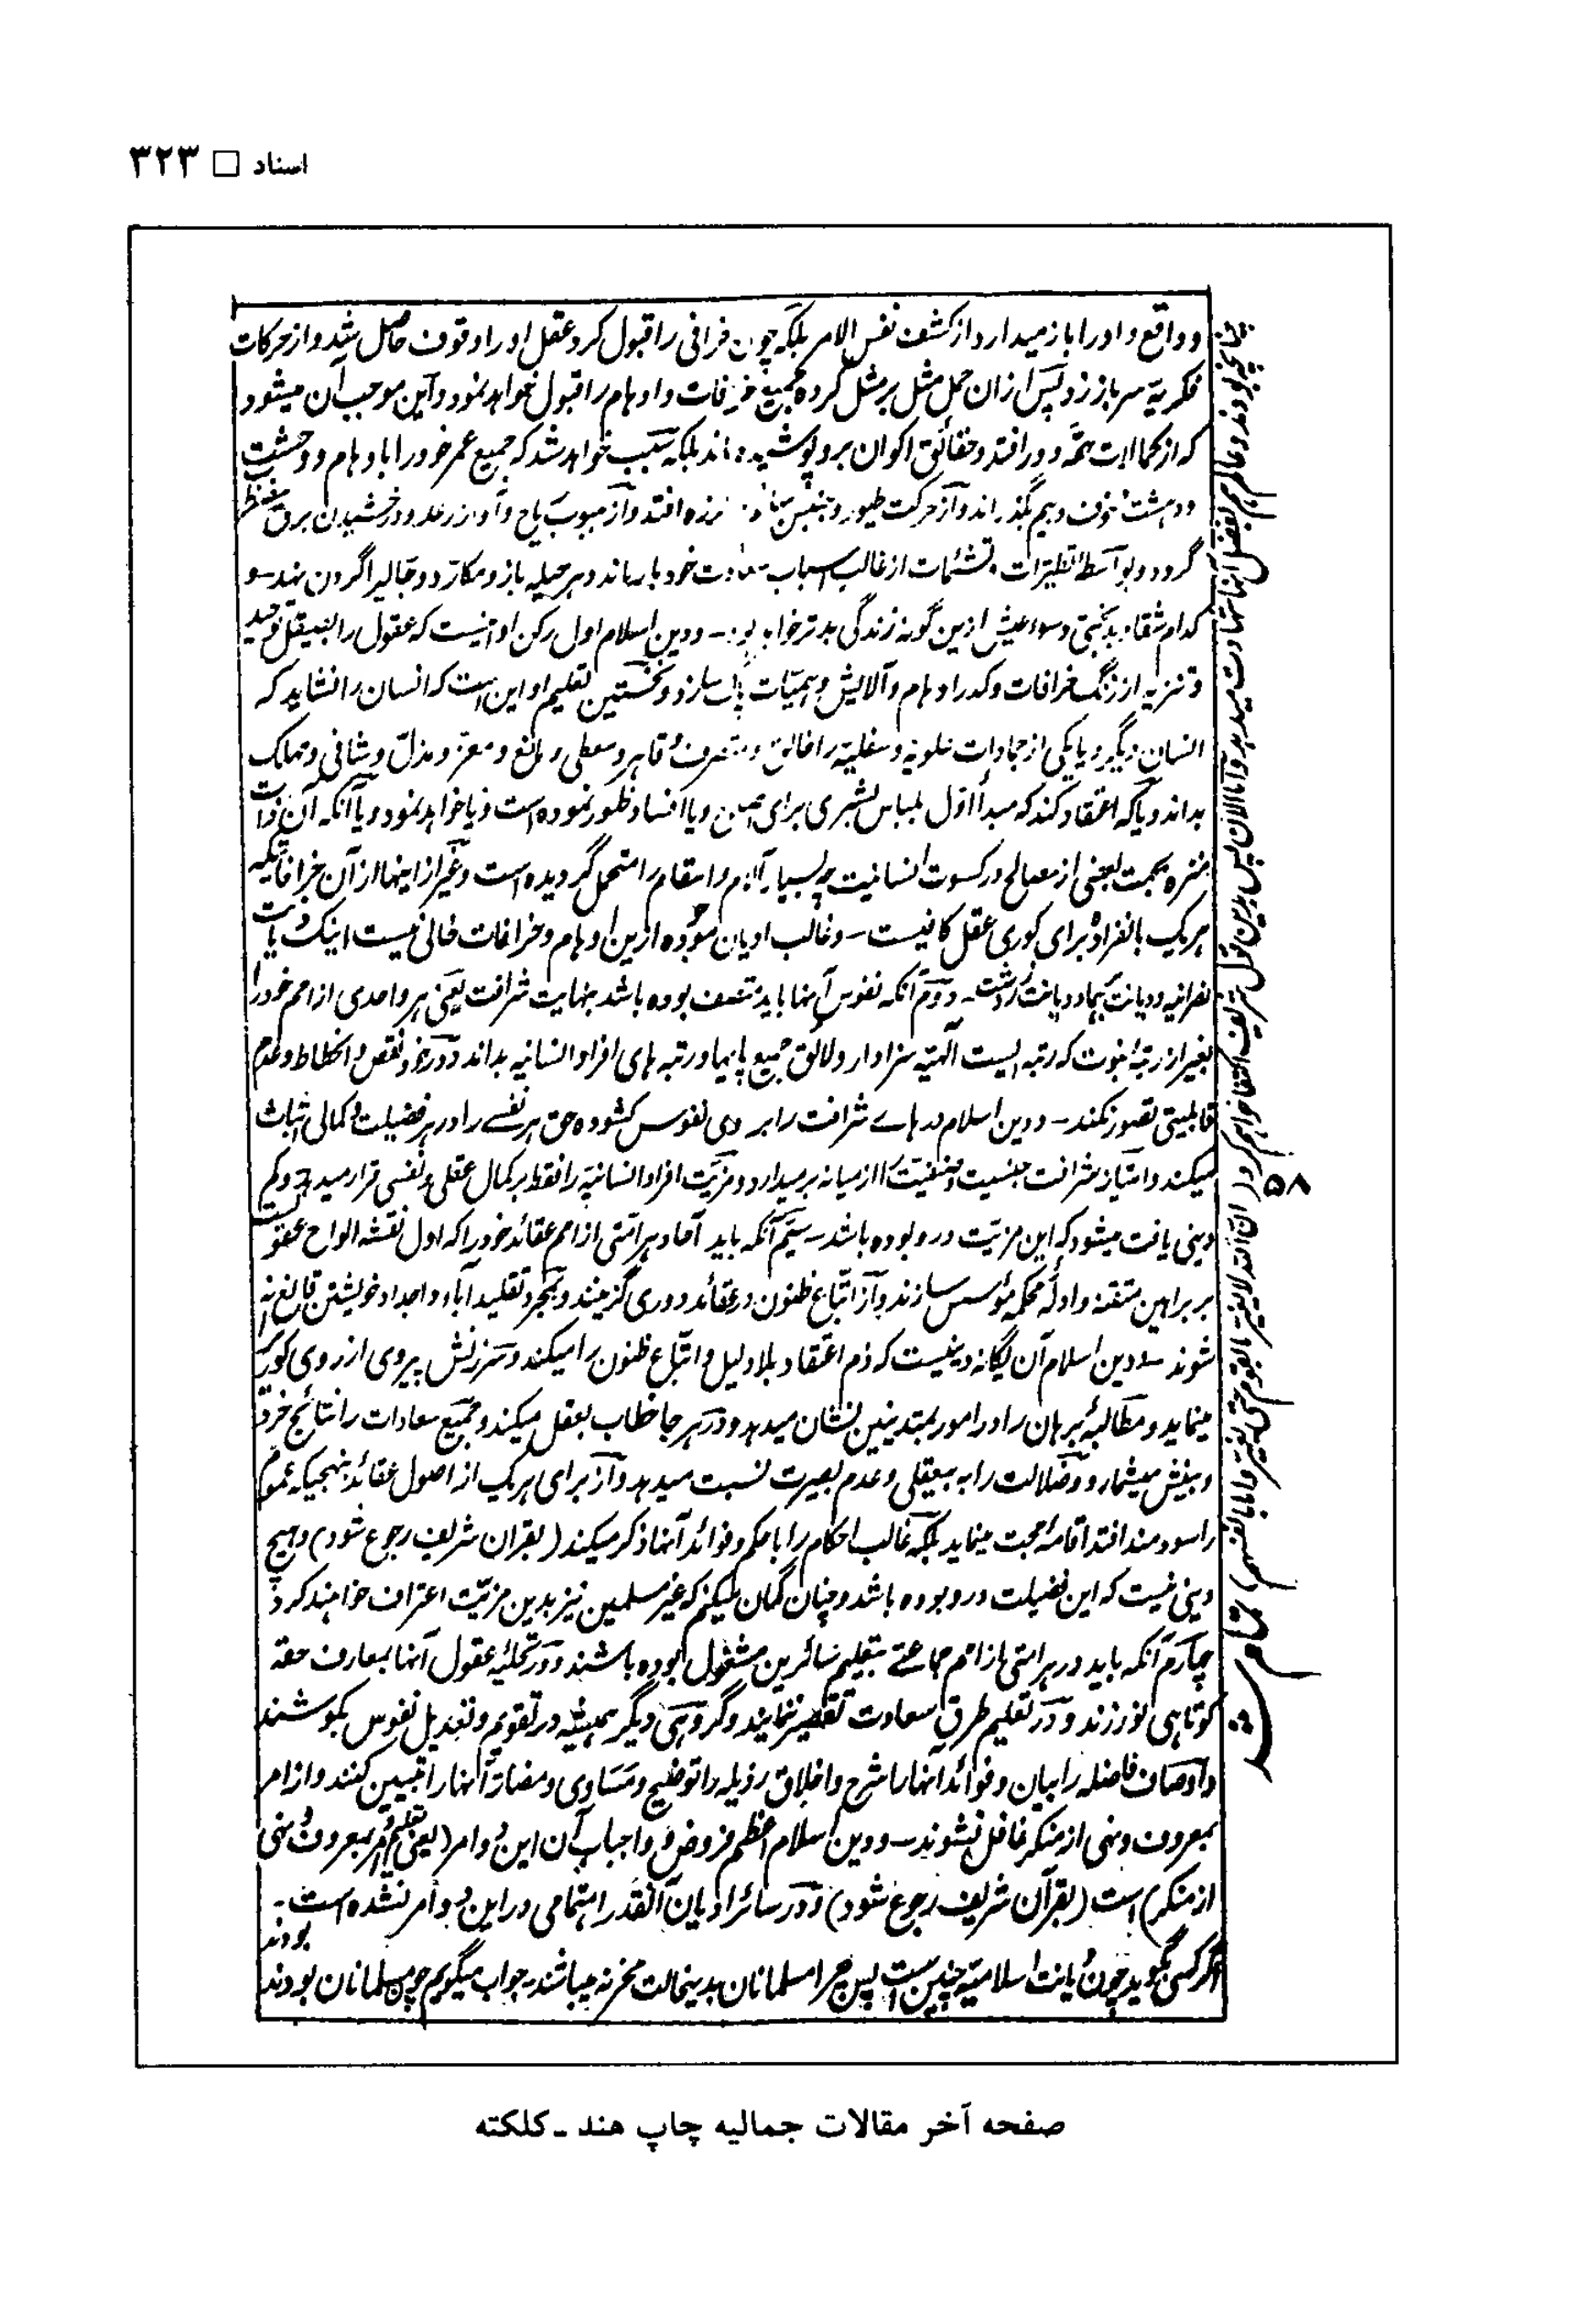 اسناد □ ۳۲۳
و واقع و اورا باز میدارد از کشف نفس الامر بلکه چون خرافی را قبول کرد عقل او را وقوف حاصل شد و از حرکات
فکریه سر باز زد و پس از ان حمل مثل بر مثل کرده جمیع خرافات و اوهام را قبول خواهد نمود و این موجب آن میشود
که از کمالات حقه دور افتد و حقائق اکوان برو پوشیده ماند بلکه سبب خواهد شد که جمیع عمر خود را باوهام و وحشت
و دهشت و خوف و بیم بگذراند و از حرکت طیور و جنبش بهائم لرزه افتد و از هبوب ریاح و آواز رعد و درخشیدن برق مضطر
گردد و بواسطه تطیرات و تشئمات از غالب اسباب سعادت خود باز ماند و بهر حیله باز و مکار و دجالیرا گردن نهد -
کدام شقا و بدبختی و سوء عیش ازین گونه زندگی بدتر خواهد بود - و دین اسلام اول رکن او اینست که عقول را بصیقل توحید
و تنزیه از زنگ خرافات و کدر اوهام و آلایش وهمیات پاک سازد و نخستین تعلیم او این است که انسان را نشاید که
انسان دیگر و یا یکی از جمادات علویه و سفلیه را خالق و متصرف و قاهر و معطی و مانع و معز و مذل و شافی و مهلک
بداند و یا که اعتقاد کند که مبدأ اول بلباس بشری برای اصلاح و یا افساد ظهور نموده است و یا خواهد نمود و یا آنکه آن ذات
منزه بجهت بعضی از مصالح در کسوت انسانیت چه بسیار آلام و اسقام را متحمل گردیده است و غیر از اینها از آن خرافاتیکه
هر یک بانفراده برای کوری عقل کافیست - و غالب ادیان موجوده ازین اوهام و خرافات خالی نیست اینک دیانت
نصرانیه و دیانت برهما و دیانت زردشت - دوم آنکه نفوس آنها باید متصف بوده باشد بنهایت شرافت یعنی هر واحدی از امم خود را
بغیر از رتبه نبوت که رتبه ایست الهیه سزاوار و لائق جمیع پایها و رتبه های افراد انسانیه بداند و در خود نقص و انحطاط و عدم
قابلیتی تصور نکند - و دین اسلام درهاے شرافت را بر روی نفوس کشوده حق هر نفسے را در هر فضیلت و کمالی اثبات
میکند و امتیاز شرافت جنسیت و صنفیت را از میانه برمیدارد و مزیت افراد انسانیه را فقط بر کمال عقلی و نفسی قرار میدهد و کم
دینی یافت میشود که این مزیت در و بوده باشد - سیم آنکه باید آحاد هر امتی از امم عقائد خود را که اول نقشه الواح عقول است
بر براهین متقنه و ادله محکمه مؤسس سازند و از اتباع ظنون در عقائد دوری گزینند و بمجرد تقلید آباء و اجداد خویشتن قانع نه
شوند - و دین اسلام آن یگانه دینیست که ذم اعتقاد بلا دلیل و اتباع ظنون را میکند و سرزنش پیروی از روی کوری
مینماید و مطالبهٔ برهان را در امور بمتدینین نشان میدهد و در هر جا خطاب بعقل میکند و جمیع سعادات را نتائج خرد
و بینش میشمارد و ضلالت را به بیعقلی و عدم بصیرت نسبت میدهد و از برای هر یک از اصول عقائد بنهجیکه عموم
را سودمند افتد اقامهٔ حجت مینماید بلکه غالب احکام را با حکم و فوائد آنها ذکر میکند (بقران شریف رجوع شود) و هیچ
دینی نیست که این فضیلت در و بوده باشد و چنان گمان میکنم که غیر مسلمین نیز بدین مزیت اعتراف خواهند کرد
چهارم آنکه باید در هر امتی از امم جماعتے بتعلیم سائرین مشغول بوده باشند و در تحلیهٔ عقول آنها بمعارف حقه
کوتاهی نورزند و در تعلیم طرق سعادت تقصیر ننمایند و گروهی دیگر همیشه در تقویم و تعدیل نفوس بکوشند
و اوصاف فاضله را بیان و فوائد آنها را شرح و اخلاق رذیله را توضیح و مساوی و مضار آنها را تبیین کنند و از امر
بمعروف و نهی از منکر غافل نشوند - و دین اسلام اعظم فروض و واجبات آن این دو امر (یعنی تعلیم و امر بمعروف و نهی
از منکر) است (بقرآن شریف رجوع شود) و در سائر ادیان آنقدر اهتمامی در این دو امر نشده است -
اگر کسی بگوید چون دیانت اسلامیه چنین است پس چرا مسلمانان بدینحالت محزنه میباشند جواب میگویم چون مسلمانان بودند بودند
چنانچه بودند و عالم هم بفضل آنها شهادت میدهد و اما الان پس بدین قول شریف اکتفا خواهم کرد (ان الله لا یغیر ما بقوم حتی یغیروا ما بانفسهم)
۵۸
صفحه آخر مقالات جمالیه چاپ هند ـ کلکته